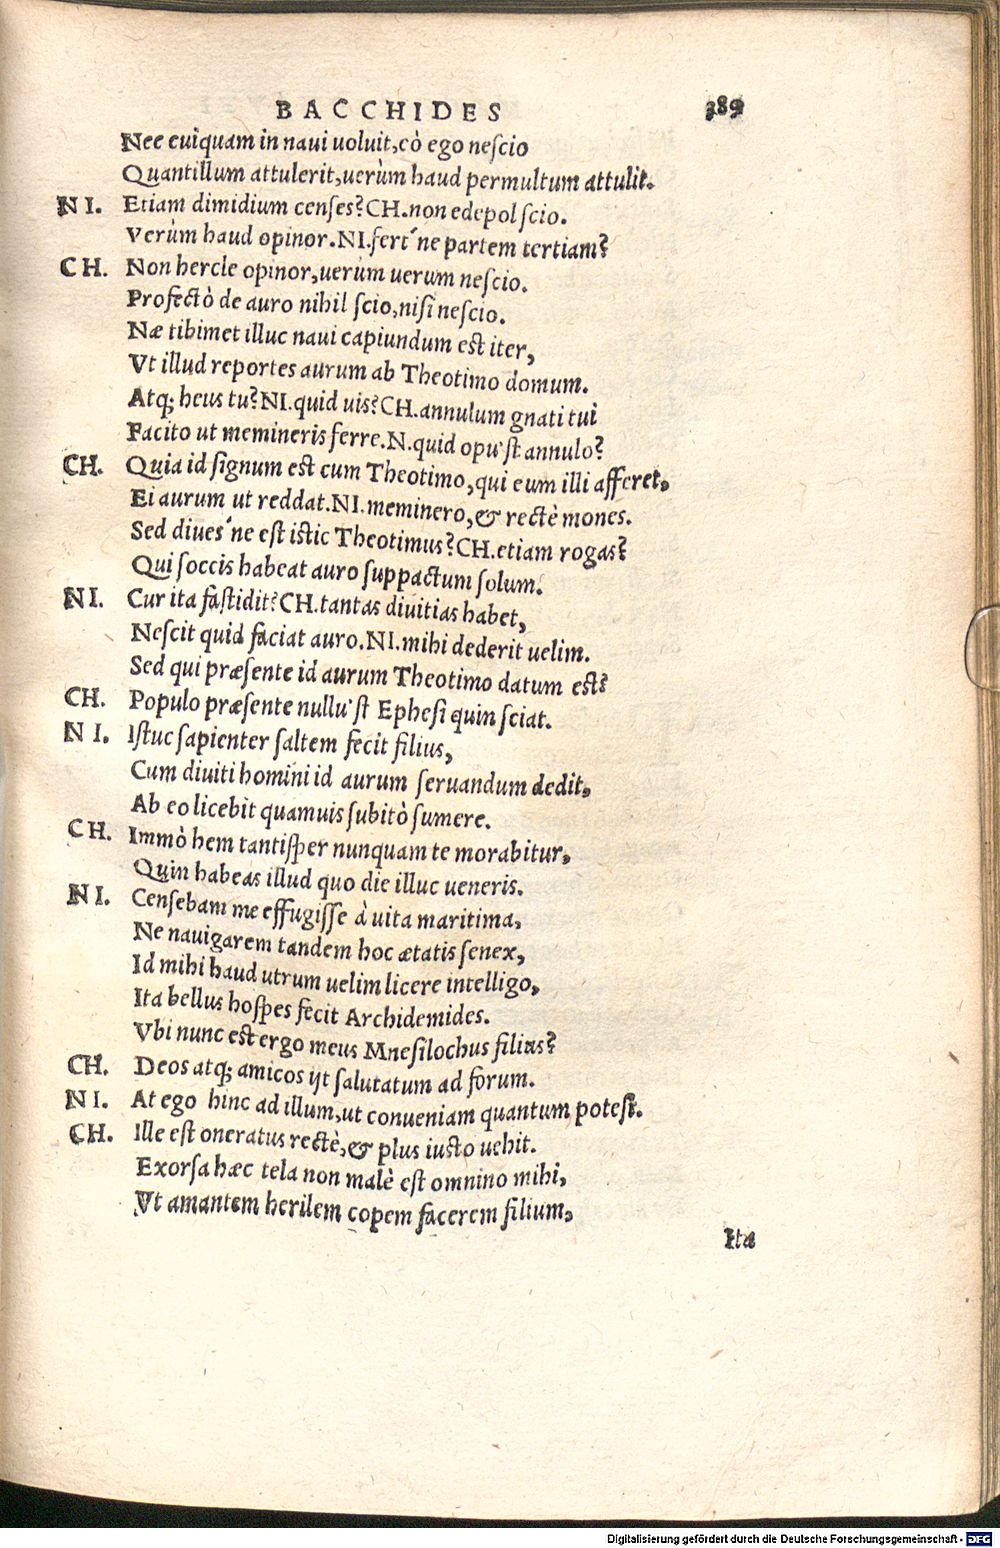 BACCHIDES 389
Nec cuiquam in naui uoluit, cò ego neſcio
Quantillum attulerit, uerùm haud permultum attulit.
NI. Etiam dimidium cenſes? CH. non edepol ſcio.
Verùm haud opinor. NI. fert´ne partem tertiam?
CH. Non hercle opinor, uerùm uerum neſcio.
Profectò de auro nihil ſcio, niſi neſcio.
Næ tibimet illuc naui capiundum est iter,
Vt illud reportes aurum ab Theotimo domum.
Atq; heus tu? NI. quid uis? CH. annulum gnati tui
Facito ut memineris ferre. N. quid opu'ſt annulo?
CH. Quia id ſignum est cum Theotimo, qui eum illi afferet,
Ei aurum ut reddat. NI. meminero, & rectè mones.
Sed diues´ne eſt istic Theotimus? CH. etiam rogas?
Qui ſoccis habeat auro ſuppactum ſolum?
NI. Cur ita faſtidit? CH. tantas diuitias habet,
Neſcit quid faciat auro. NI. mihi dederit uelim.
Sed qui præſente id aurum Theotimo datum est?
CH. Populo præſente nullu'ſt Epheſi quin ſciat.
NI. Iſtuc ſapienter ſaltem fecit filius,
Cum diuiti homini id aurum ſeruandum dedit,
Ab eo licebit quamuis ſubitò ſumere.
CH. Immò hem tantiſper nunquam te morabitur,
Quin habeas illud quo die illuc ueneris.
NI. Cenſebam me effugiſſe à uita maritima,
Ne nauigarem tandem hoc ætatis ſenex,
Id mihi haud utrum uelim licere intelligo,
Ita bellus hoſpes fecit Archidemides.
Vbi nunc est ergo meus Mneſilochus filius?
CH. Deos atq; amicos ijt ſalutatum ad forum.
NI. At ego hinc ad illum, ut conueniam quantum poteſt.
CH. Ille eſt oneratus rectè, & plus iuſto uehit.
Exorſa hæc tela non malè eſt omnino mihi,
Vt amantem herilem copem facerem filium,
Ita
Digitalisierung gefördert durch die Deutsche Forschungsgemeinschaft - DFG